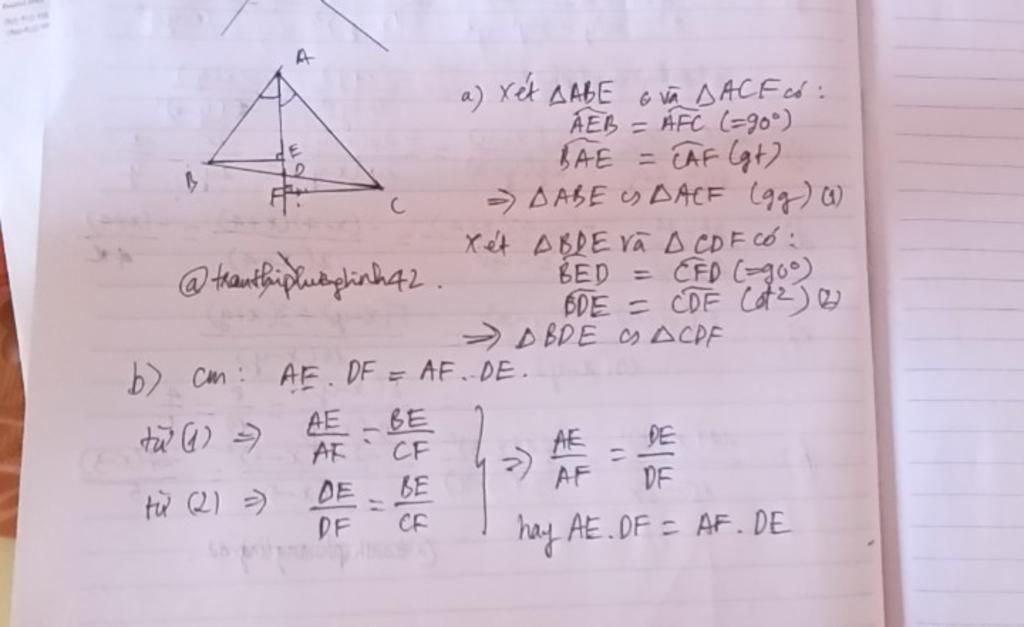 A
B
E
D
F
C
a) Xét ΔABE và ΔACF có:
AEB = AFC (=90°)
BAE = CAF (gt)
⇒ ΔABE ∽ ΔACF (gg) (1)
Xét ΔBDE và ΔCDF có:
BED = CFD (=90°)
BDE = CDF (đ2) (2)
⇒ ΔBDE ∽ ΔCDF
b) cm: AE. DF = AF. DE.
từ (1) ⇒ AE/AF = BE/CF
từ (2) ⇒ DE/DF = BE/CF
⇒ AE/AF = DE/DF
hay AE.DF = AF.DE